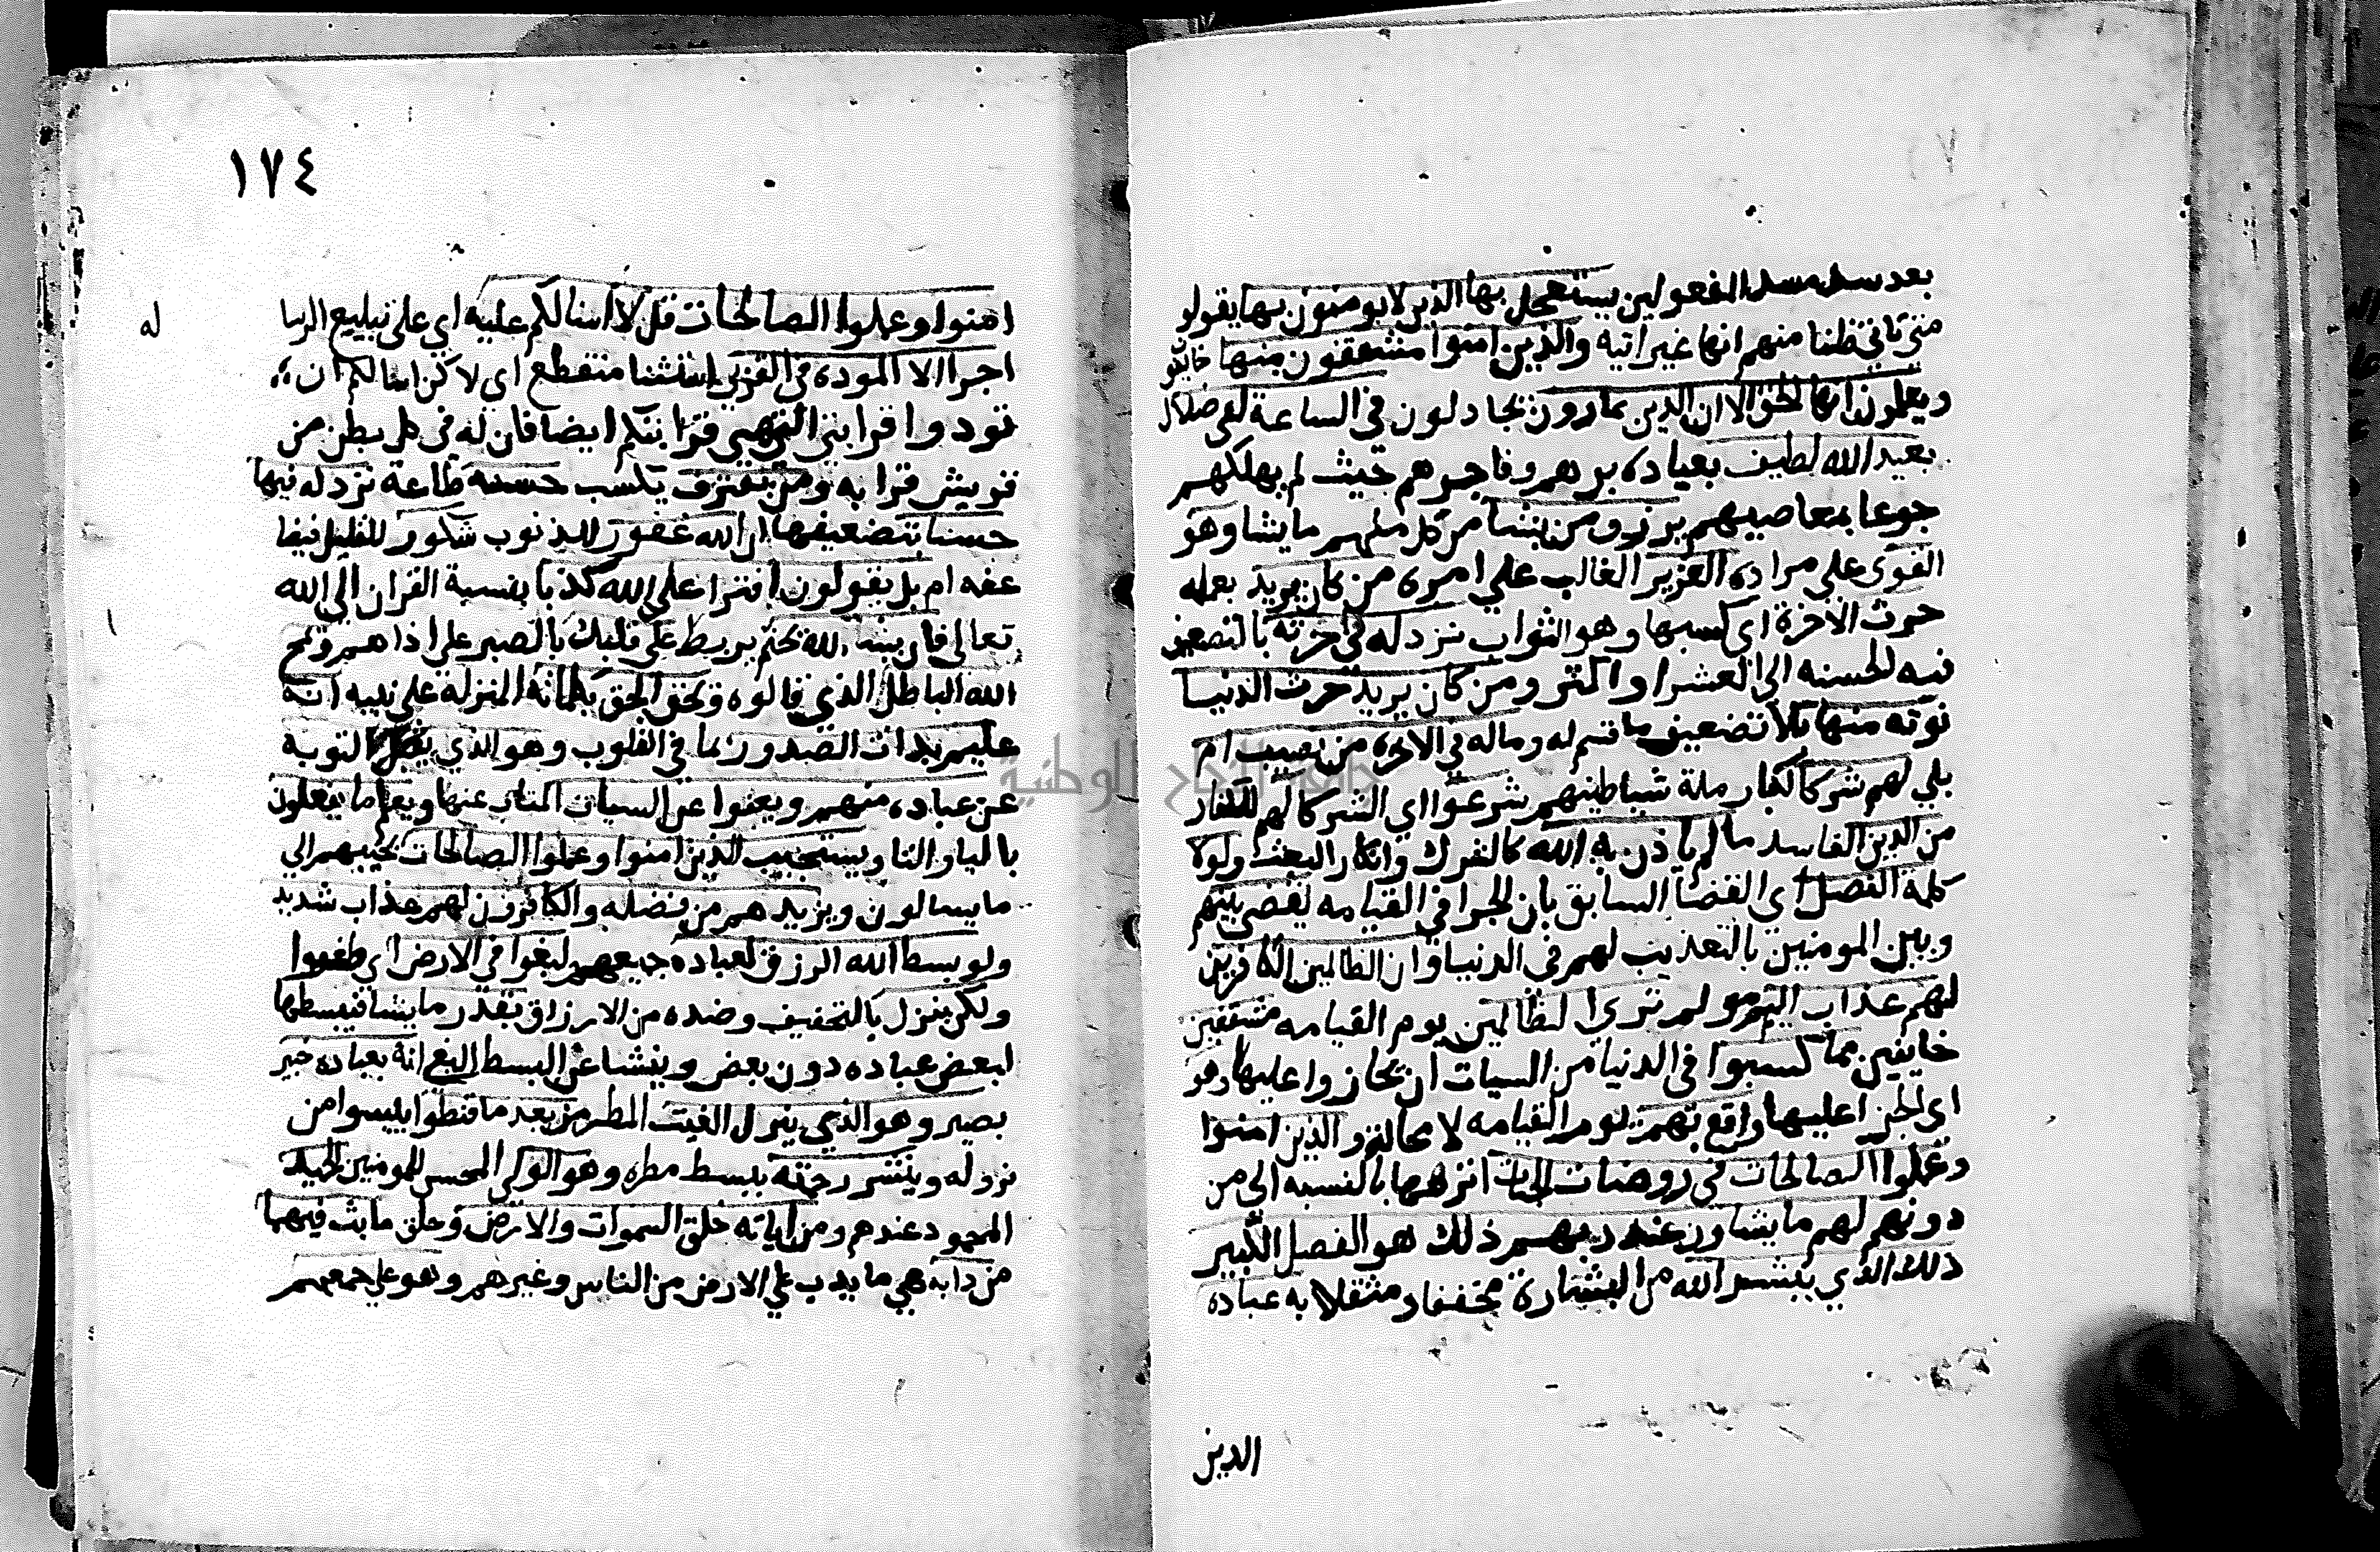 بعد سد مسد المفعولين يستعجل بها الذين لا يومنون بها يقولو
متى تاتي ظنا منهم انها غير اتيه والذين امنوا مشفقون منها خايفو
ويعلمون انها الحق الا ان الذين يمارون يجادلون في الساعة لفي ضلال
بعيد الله لطيف بعباده برهم وفاجرهم حيث لم يهلكهم
جوعا بمعاصيهم يرزق من يشا من كل منهم ما يشا وهو
القوى على مراده العزيز الغالب على امره من كان يريد بعمله
حرث الاخرة اي كسبها وهو الثواب نزد له في حرثه بالتضعيف
فيه الحسنه الي العشر او اكثر ومن كان يريد حرث الدنيا
نوته منها بلا تضعيف ما قسم له وماله في الاخره من نصيب ام
بلي لهم شركا لكفار ملة شياطينهم شرعوا اي الشركا لهم للكفار
من الدين الفاسد ما لم ياذن به الله كالشرك وانكار البعث ولولا
كلمة الفصل اي القضا السابق بان الجزا في القيامه لقضى بينهم
وبين المومنين بالتعذيب لهم في الدنيا وان الظالمين الكافرين
لهم عذاب اليم مولم ترى الظالمين يوم القيامه مشفقين
خايفين مما كسبوا في الدنيا من السيات ان يجازوا عليها وهو
اى الجزا عليها واقع بهم يوم القيامه لا محالة والذين امنوا
وعملوا الصالحات في روضات الجنات انزهها بالنسبه الى من
دونهم لهم ما يشاون عند ربهم ذلك هو الفضل الكبير
ذلك الذي يبشر الله من البشارة مخففا ومثقلا به عباده
الذين
١٧٤
امنوا وعملوا الصالحات قل لا اسالكم عليه اي على تبليغ الرسا
له
اجرا الا المودة في القربى استثنا منقطع اى لاكن اسالكم ان
تودوا قرابتي التي هي قرابتكم ايضا فان له في كل بطن من
قريش قرابه ومن يقترف يكسب حسنه طاعة نزد له فيها
حسنا بتضعيفها ان الله غفور للذنوب شكور للقليل فيضا
عفه ام بل يقولون افترا على الله كذبا بنسبة القران الى الله
تعالى فان يشا الله يختم يربط على قلبك بالصبر على اذاهم ويمح
الله الباطل الذي قالوه ويحق الحق بكلماته المنزلة على نبيه انه
عليم بذات الصدور بما في القلوب وهو الذي يقبل التوبه
عن عباده منهم ويعفوا عن السيات المتاب عنها ويعلم ما يفعلون
باليا والتا ويستجيب الذين امنوا وعملوا الصالحات يجيبهم الي
ما يسالون ويزيدهم من فضله والكافرون لهم عذاب شديد
ولو بسط الله الرزق لعباده جميعهم لبغوا في الارض اي طغوا
ولكن ينزل بالتخفيف وضده من الارزاق بقدر ما يشا فيبسطها
لبعض عباده دون بعض وينشا عن البسط البغي انه بعباده خبير
بصير وهو الذي ينزل الغيث المطر من بعد ما قنطوا ييسوا من
نزوله وينشر رحمته يبسط مطره وهو الولي المحسن للمومنين الحميد
المحمود عندهم ومن اياته خلق السموات والارض وخلق ما بث فيهما
من دابه هي ما يدب علي الارض من الناس وغيرهم وهو على جمعهم